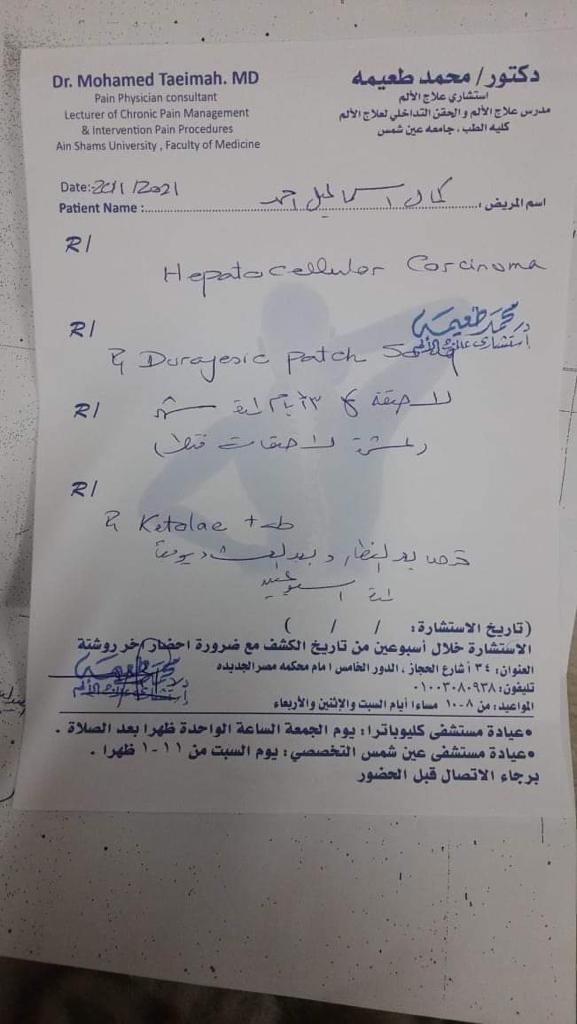 Dr. Mohamed Taeimah. MD
Pain Physician consultant
Lecturer of Chronic Pain Management
& Intervention Pain Procedures
Ain Shams University , Faculty of Medicine
دكتور/ محمد طعيمه
استشاري علاج الألم
مدرس علاج الألم و الحقن التداخلي لعلاج الألم
كليه الطب ، جامعه عين شمس
Date: /1 /2021
Patient Name : كمال اسماعيل احمد اسم المريض :
R/
Hepatocellular Carcinoma
د. محمد طعيمه
R/
Durajesic patch
R/
لاصقة كل ٣ أيام لمدة شهر
لاصقات فقط
R/
Ketolac tab
قرص بعد الفطار و بعد العشاء يومياً
لمدة اسبوعين
(تاريخ الاستشارة : / / )
الاستشارة خلال أسبوعين من تاريخ الكشف مع ضرورة احضار اخر روشتة
العنوان : ٣٤ أ شارع الحجاز ، الدور الخامس امام محكمه مصر الجديده
تليفون : ٠١٠٠٣٠٨٠٩٣٨
المواعيد : من ٨-١٠ مساءا أيام السبت والإثنين والأربعاء
د. محمد طعيمه
• عيادة مستشفى كليوباترا : يوم الجمعة الساعة الواحدة ظهرا بعد الصلاة .
• عيادة مستشفى عين شمس التخصصي : يوم السبت من ١١ -١ ظهرا .
برجاء الاتصال قبل الحضور